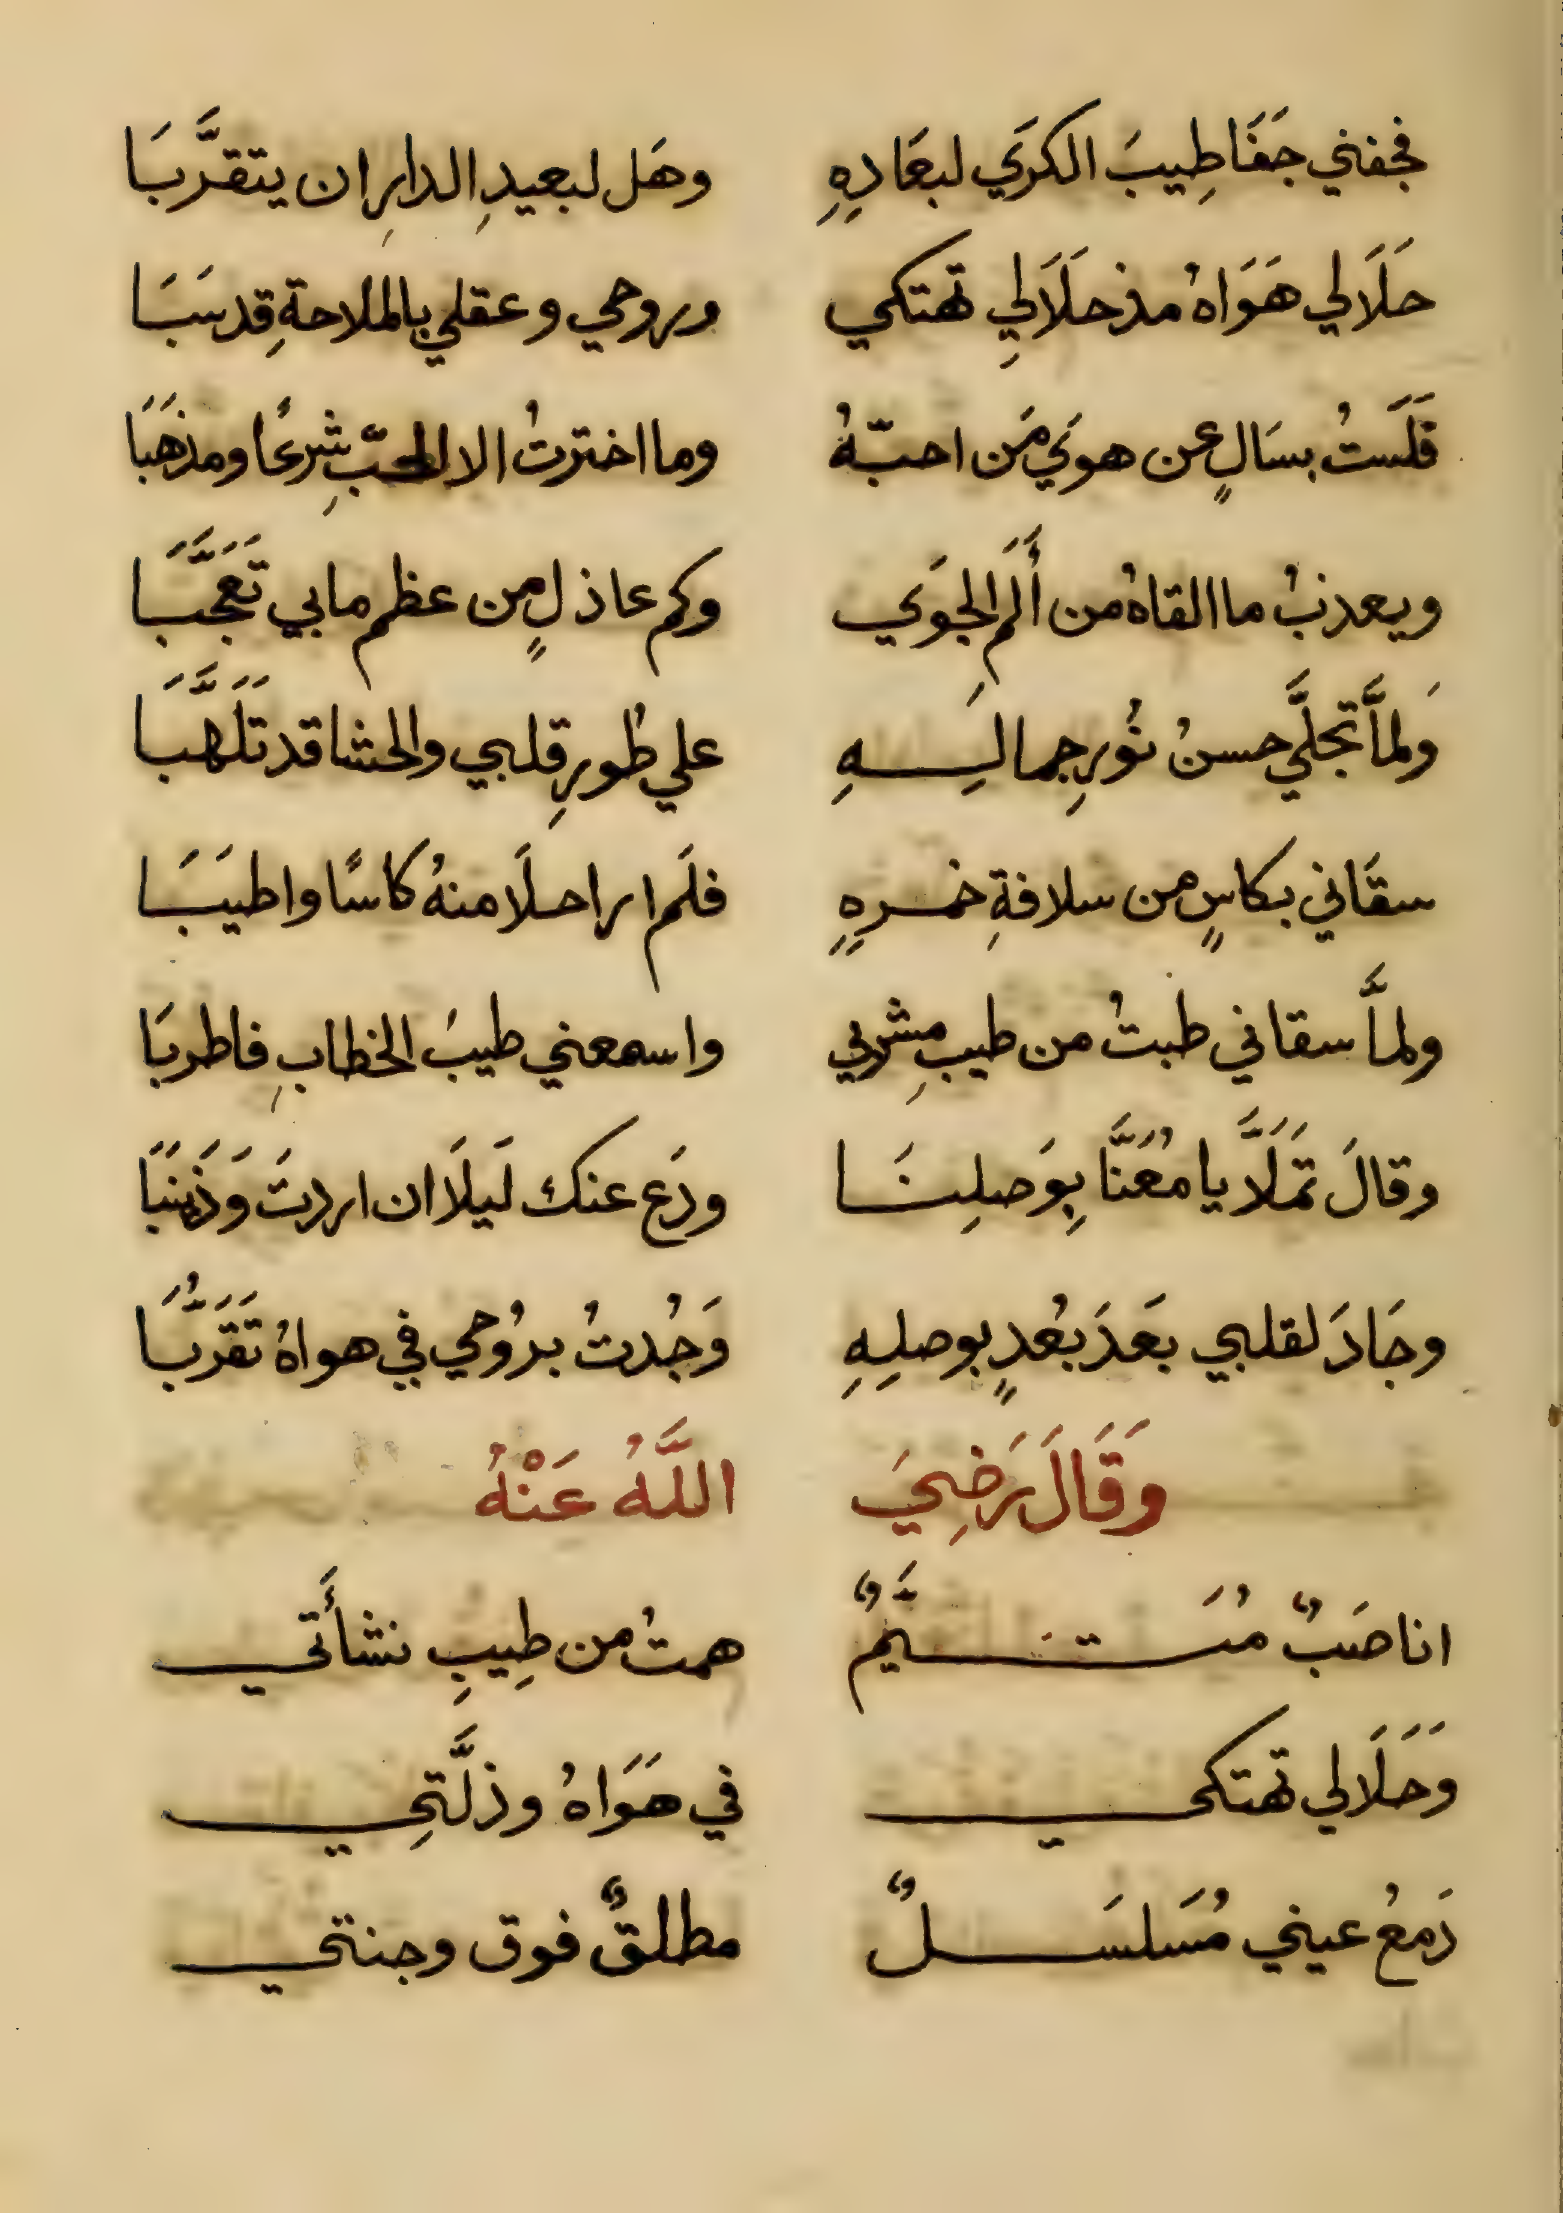 فجفني جَفَا طِيبَ الكرَي لبعَادِهِ وهَل لبعيدِ الدارِ ان يتقرَّبَا
حَلَالي هَوَاهُ مذ حَلَالِي تهتكي وروحي وعقلي بالملاحةِ قد سَبَا
فَلَستُ بسَالٍ عن هوَي مَن احبّهُ وما اخترتُ الا الحبِّ شرعًا ومذهَبَا
ويعذبُ ما القاهُ من أَلَمِ الجوَي وكم عاذلٍ من عظم مابي تَعَجَّبَا
وَلمَّا تجلَّي حسنُ نُورِ جمالِهِ علي طُورِ قلبي والحشا قد تَلَهَّبَا
سقَاني بكاسٍ من سلافةِ خمرِهِ فلَم ار احلَا منهُ كاسًا واطيَبَا
ولمَّا سقاني طبتُ من طيبِ مشربي واسمعني طيبَ الخطابِ فاطربَا
وقالَ تمَلَّا يا مُعَنَّا بِوَصلِنَا ودَع عنك لَيلَا ان اردتَ وَذَينَبَا
وجَادَ لقلبي بَعَدَ بُعدٍ بوصلِهِ وَجُدتُ برُوحي في هواهُ تَقَرُّبَا
وَقَالَ رَضِيَ اللَّهُ عَنْهُ
انا صَبٌ مُتَيَّمٌ همتُ من طِيبِ نشأَتي
وَحَلَالي تهتكي في هَوَاهُ وذلَّتِي
دَمعُ عيني مُسَلسَلٌ مطلقٌ فوق وجنتي